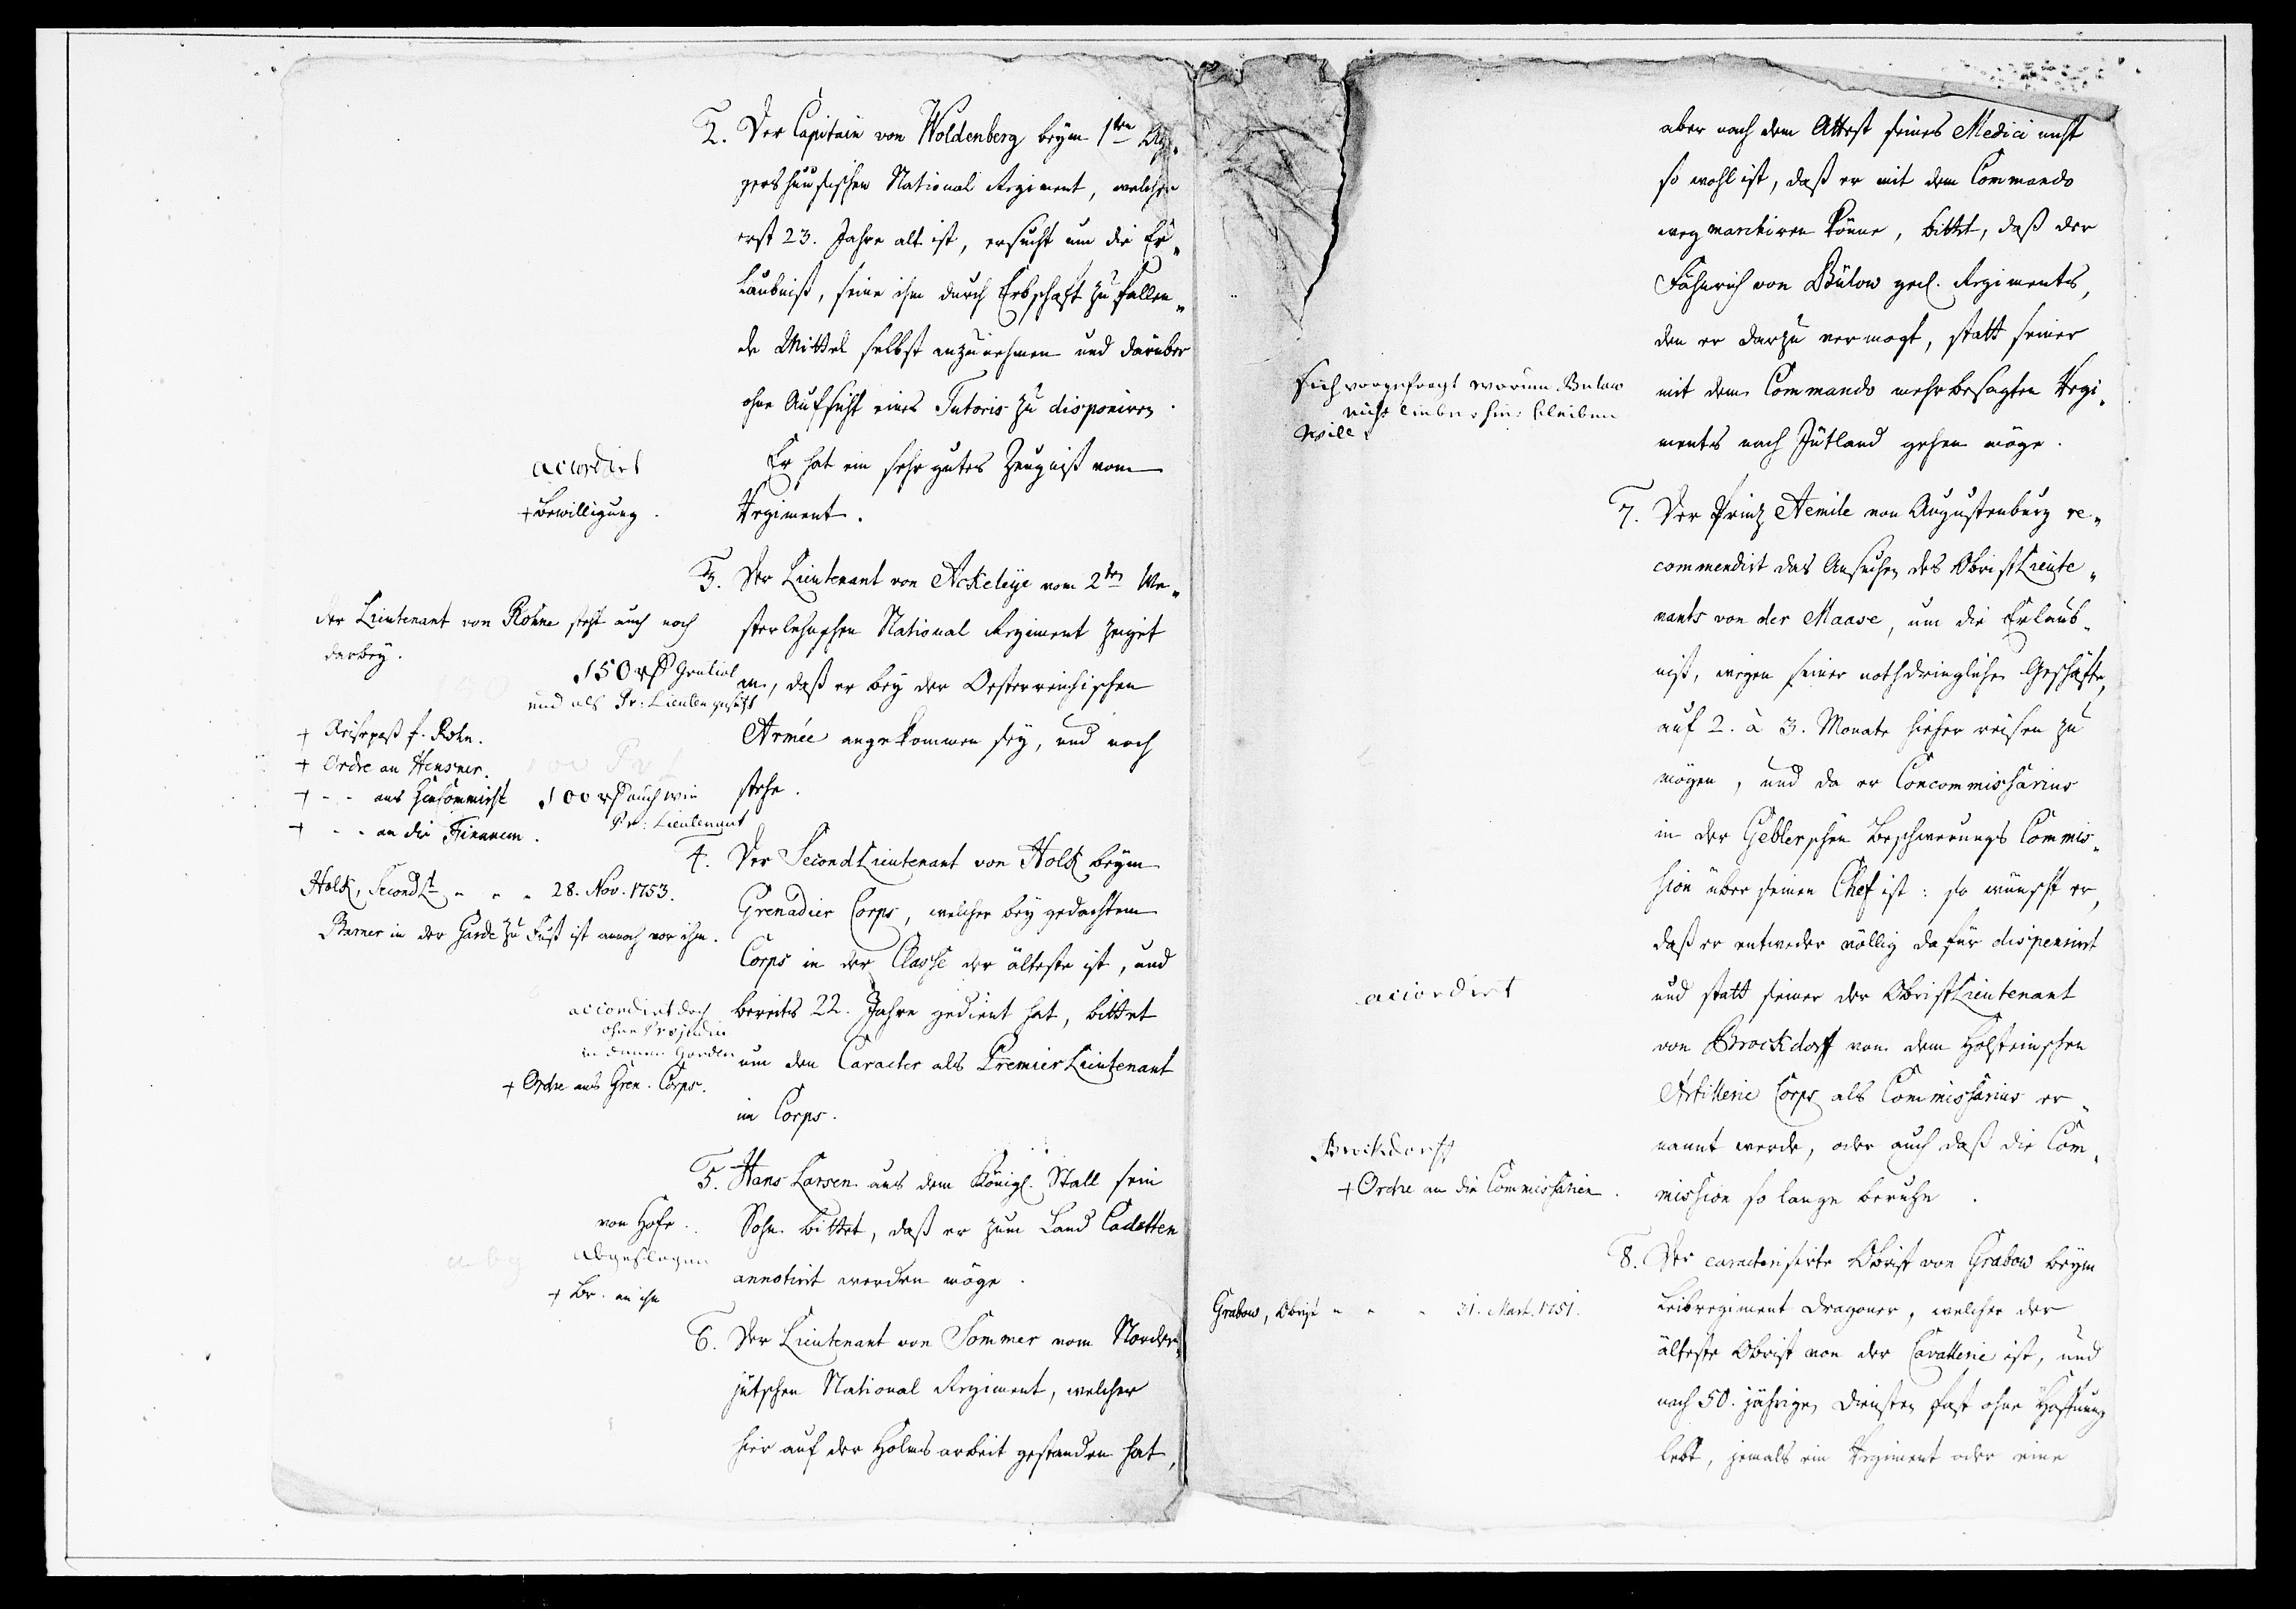 2. Der Capitain von Woldenberg beym 1ten Ag„
gershuusischen National Regiment, welcher
erst 23. Jahre alt ist, ersucht um die Er„
laubniß, seine ihm durch Erbschaft zu fallen„
de Mittel selbst anzunehmen und darüber
ohne Aufsicht eines Tutoris zu disponiren.
accordirt
Er hat ein sehr gutes Zeugniß vom
+ Bewilligung.
Regiment.
3. Der Lieutenant von Ackeleye vom 2ten We„
sterlehnschen National Regiment zeiget
an, daß er bey der Oesterreichischen
Armée angekommen sey, und noch
stehe.
Der Lieutenant von Rohne steht auch noch
darbey.
150 rd Gratial
und als Pr: Lieuten gesetzt
+ Reisepaß f. Rohn.
+ Ordre an Heusner.
+ - - ans GenCommisst
100 rd auch wie
Pr: Lieutenant
+ - - an die Financen.
4. Der SecondLieutenant von Holk beym
Grenadier Corps, welcher bey gedachtem
Corps in der Classe der älteste ist, und
bereits 22. Jahre gedient hat, bittet
um den Caracter als PremierLieutenant
im Corps.
Holk, SecondLt „ „ „ 28. Nov. 1753.
Barner in der Garde zu Fuß ist annoch vor ihm.
accordirt doch
ohne Prejudice
in denen Garden
+ Ordre ans Gren. Corps.
5. Hans Larsen aus dem Königl. Stall sein
Sohn bittet, daß er zum Land Cadetten
annotirt werden möge.
von Hofe.
abgeslagen
+ Br. an ihn
6. Der Lieutenant von Sommer vom Norder„
jütschen National Regiment, welcher
hier auf der Holmsarbeit gestanden hat,
aber nach dem Attest seines Medici nicht
so wohl ist, daß er mit dem Commando
weg marchiren könne, bittet, daß der
Fähnrich von Bülow gecl. Regiments,
den er darzu vermogt, statt seiner
mit dem Commando mehrbesagten Regi„
ments nach Jütland gehen möge.
warum Bulow
nicht lieber hier bleiben
will
7. Der Prinz Aemile von Augustenburg re„
commendirt das Ansuchen des ObristLieute„
nants von der Maase, um die Erlaub„
niß, wegen seiner nothdringlichen Geschäfte,
auf 2. à 3. Monate hieher reisen zu
mögen, und da er Concommissarius
in der Geblerschen Beschwerungs Commis„
sion über seinen Chef ist: so wünscht er,
daß er entweder völlig dafür dispensirt
und statt seiner der ObristLieutenant
von Brockdorff von dem Holsteinschen
Artillerie Corps als Commissarius er„
nannt werde, oder auch daß die Com„
mission so lange beruhe.
accordirt
Brockdorff
+ Ordre an die Commissarien.
8. Der caracterisirte Obrist von Grabow beym
Leibregiment Dragoner, welcher der
älteste Obrist von der Cavallerie ist, und
nach 50. jährigen Diensten fast ohne Hoffnung
lebt, jemals ein Regiment oder eine
Grabow, Obrist „ „ „ 31. Mart. 1751.